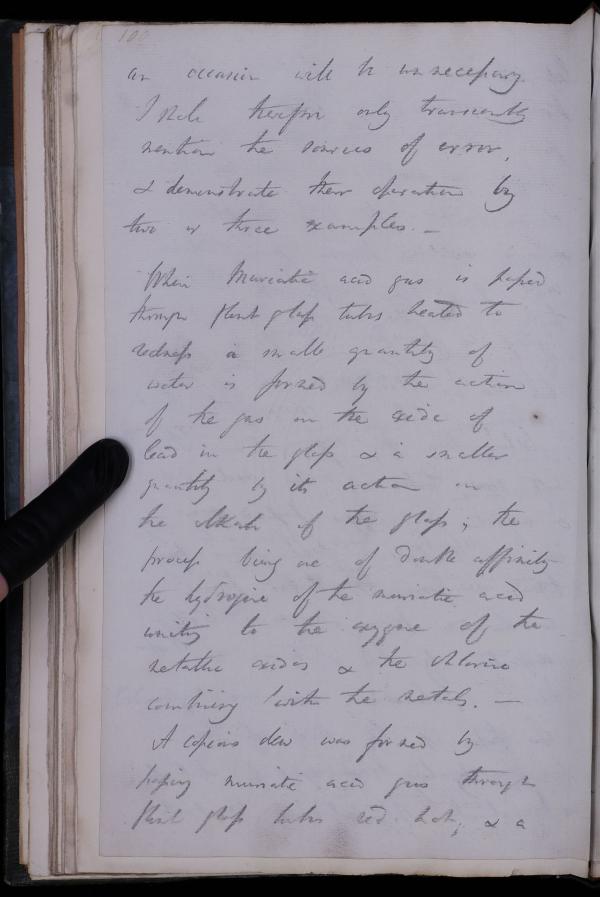 100
an occasion will be unnecessary.
I shall therefore only transiently
mention the sources of error,
& demonstrate their operation by
two or three examples. —
When Muriatic acid gas is passed
through flint glass tubes heated to
redness a small quantity of
water is formed by the action
of the gas on the oxide of
lead in the glass & a smaller
quantity by its action on
the alkali of the glass; the
process being one of double affinity
the hydrogene of the muriatic acid
uniting to the oxygene of the
metallic oxides & the chlorine
combining with the metals. —
A copious dew was formed by
passing muriatic acid gas through
flint glass tubes red hot; & a